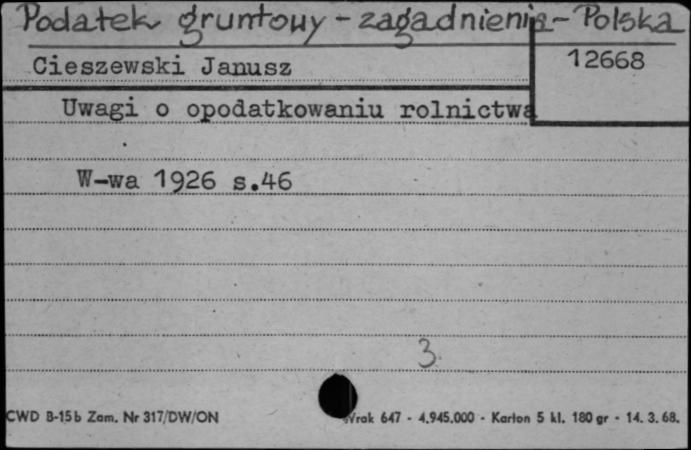 Podatek gruntowy - zagadnienia - Polska
Cieszewski Janusz
12668
Uwagi o opodatkowaniu rolnictwa
W-wa 1926 s.46
3
CWD B-15b Zam. Nr 317/DW/ON
Wrak 647 - 4.945.000 - Karton 5 kl. 180 gr - 14. 3. 68.